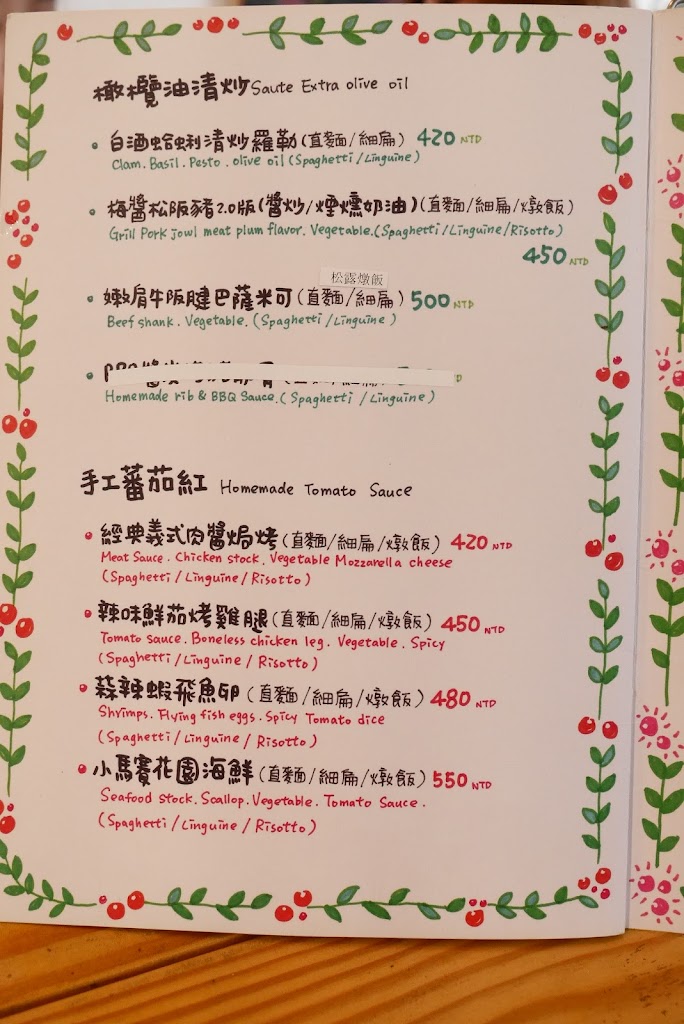 橄欖油清炒 Saute Extra olive oil
• 白酒蛤蜊清炒羅勒(直麵/細扁) 420 NTD
Clam. Basil. Pesto. olive oil (Spaghetti/Linguine)
• 梅醬松阪豬2.0版(醬炒/煙燻奶油)(直麵/細扁/燉飯)
Grill Pork jowl meat plum flavor. Vegetable.(Spaghetti/Linguine/Risotto)
450 NTD
松露燉飯
• 嫩肩牛阪腱巴薩米可(直麵/細扁) 500 NTD
Beef shank. Vegetable. (Spaghetti/Linguine)
Homemade rib & BBQ Sauce.(Spaghetti/Linguine)
手工蕃茄紅 Homemade Tomato Sauce
• 經典義式肉醬焗烤(直麵/細扁/燉飯) 420 NTD
Meat Sauce. Chicken stock. Vegetable Mozzarella cheese
(Spaghetti/Linguine/Risotto)
• 辣味鮮茄烤雞腿(直麵/細扁/燉飯) 450 NTD
Tomato sauce. Boneless chicken leg. Vegetable. Spicy
(Spaghetti/Linguine/Risotto)
• 蒜辣蝦飛魚卵(直麵/細扁/燉飯) 480 NTD
Shyimps. Flying fish eggs. Spicy Tomato dice
(Spaghetti/Linguine/Risotto)
• 小馬賽花園海鮮(直麵/細扁/燉飯) 550 NTD
Seafood stock. Scallop. Vegetable. Tomato Sauce.
(Spaghetti/Linguine/Risotto)